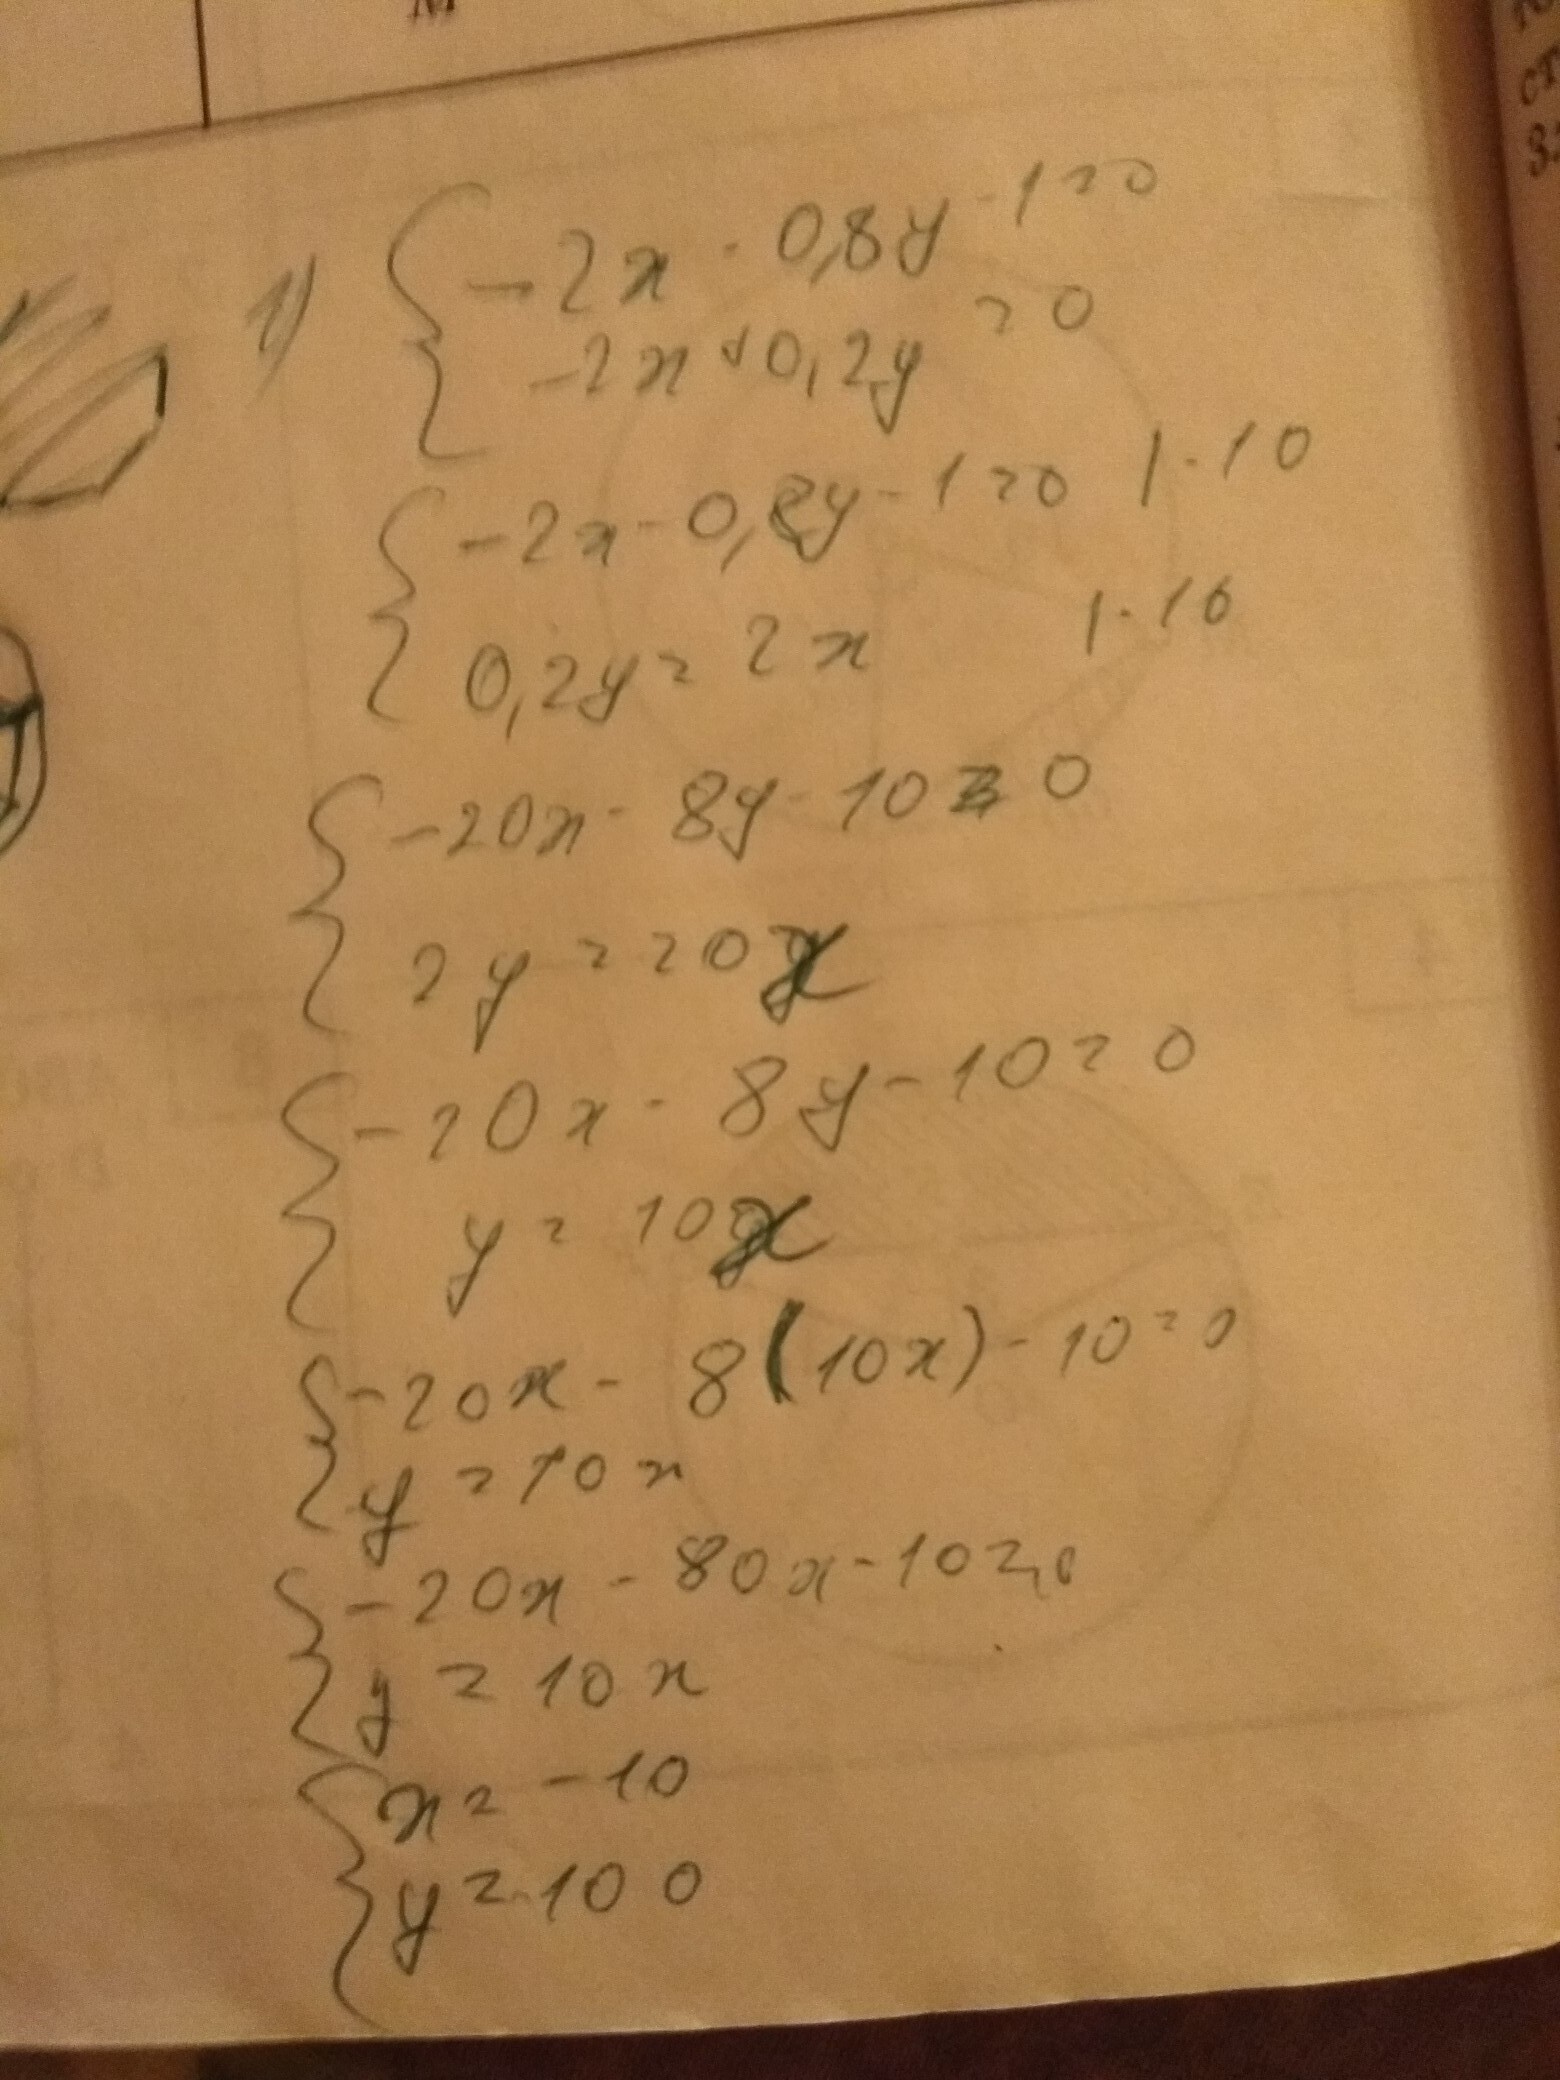 М
1) { -2x - 0,8y - 1 = 0
-2x + 0,2y = 0
{ -2x - 0,8y - 1 = 0 | · 10
0,2y = 2x | · 10
{ -20x - 8y - 10 = 0
2y = 20x
{ -20x - 8y - 10 = 0
y = 10x
{ -20x - 8(10x) - 10 = 0
y = 10x
{ -20x - 80x - 10 = 0
y = 10x
{ x = -10
y = 100